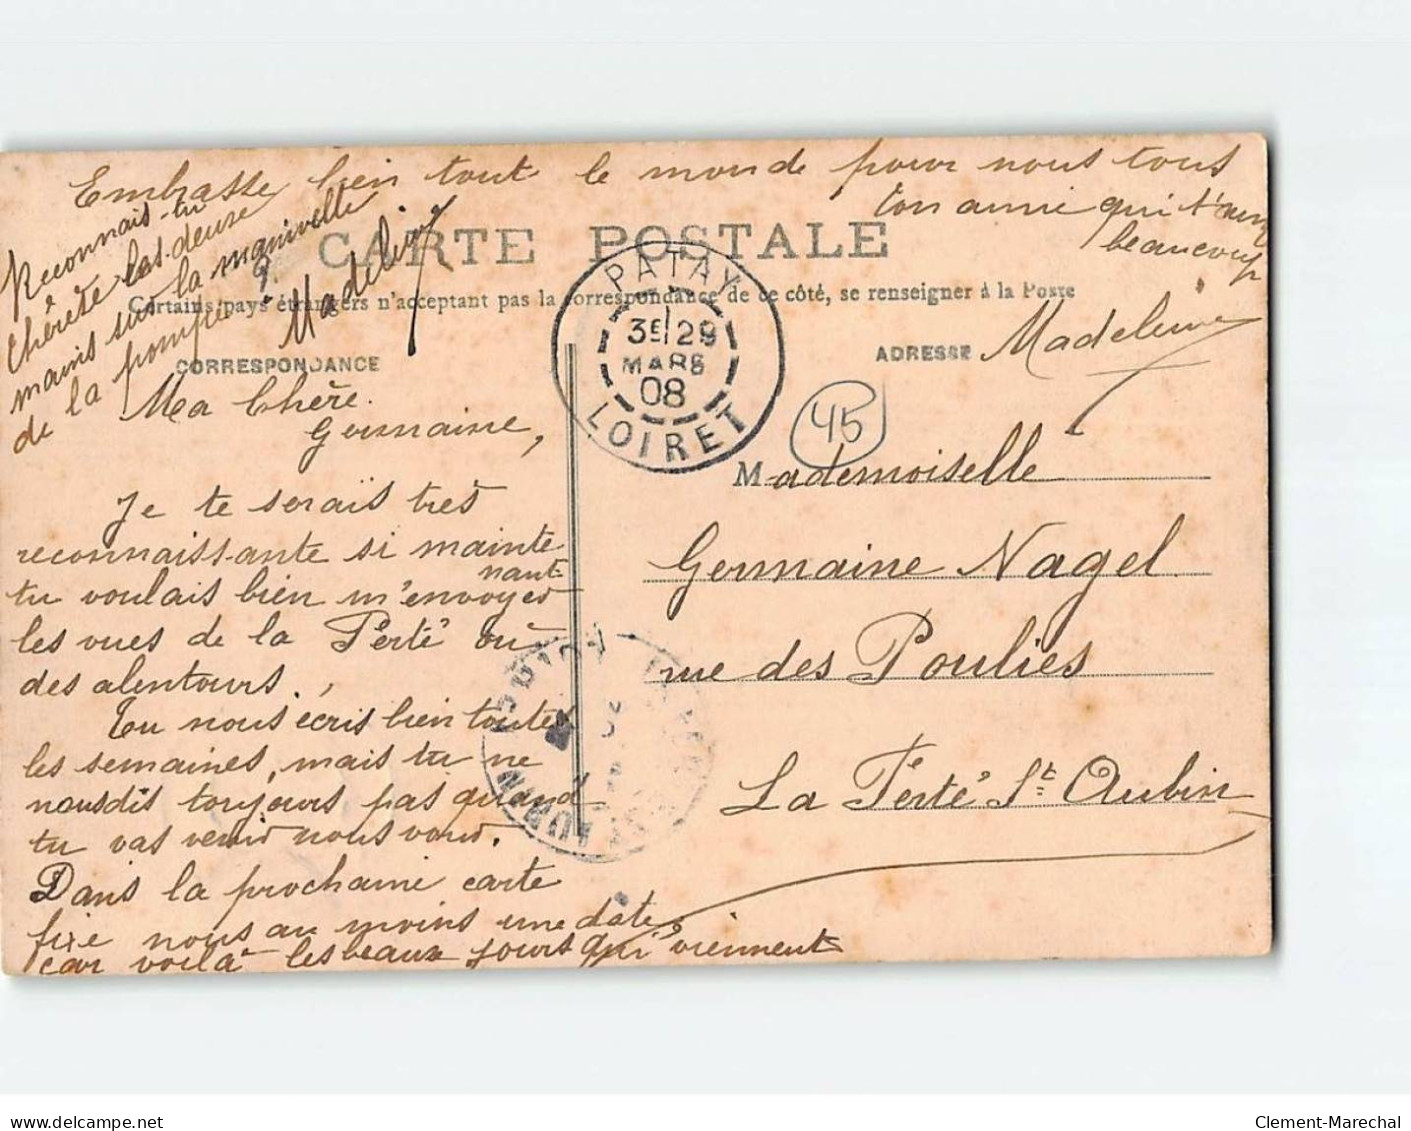 Embrasse bien tout le monde pour nous tous
ton amie qui t'aime
beaucoup
Madeleine
Reconnais-tu
chérète les deuse
mains sur la manivelle
de la pompe ?
Madeleine
CARTE POSTALE
Certains pays étrangers n'acceptant pas la correspondance de ce côté, se renseigner à la Poste
CORRESPONDANCE
ADRESSE
PATAY
3E 29
MARS
08
LOIRET
45
Ma Chère
Germaine,
Je te serais très
reconnaissante si mainte
nant
tu voulais bien m'envoyer
les vues de la Ferté ou
des alentours.
Tu nous écris bien toutes
les semaines, mais tu ne
nous dis toujours pas quand
tu vas venir nous voir.
Dans la prochaine carte
fixe nous au moins une date,
car voilà les beaux jours qui viennent
Mademoiselle
Germaine Nagel
rue des Poulies
La Ferté St Aubin
www.delcampe.net
Clement-Marechal